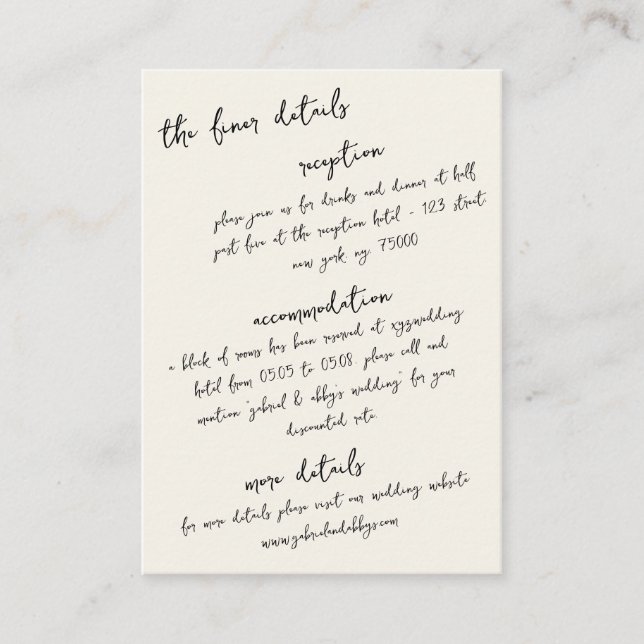 the finer details
reception
please join us for drinks and dinner at half
past five at the reception hotel - 123 street,
new york, ny, 75000
accommodation
a block of rooms has been reserved at xyzwedding
hotel from 05.05 to 05.08. please call and
mention "gabriel & abby's wedding" for your
discounted rate.
more details
for more details please visit our wedding website
www.gabrielandabbys.com